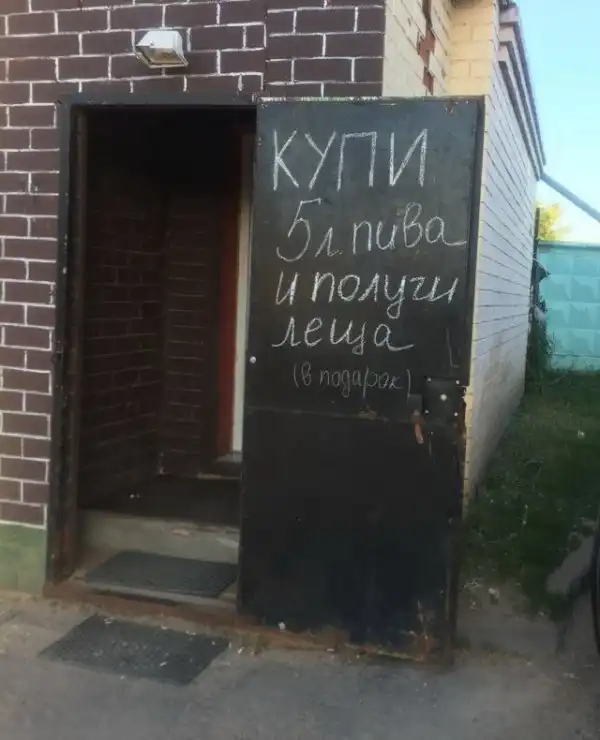 КУПИ
5 л. пива
и получи
леща
(в подарок)